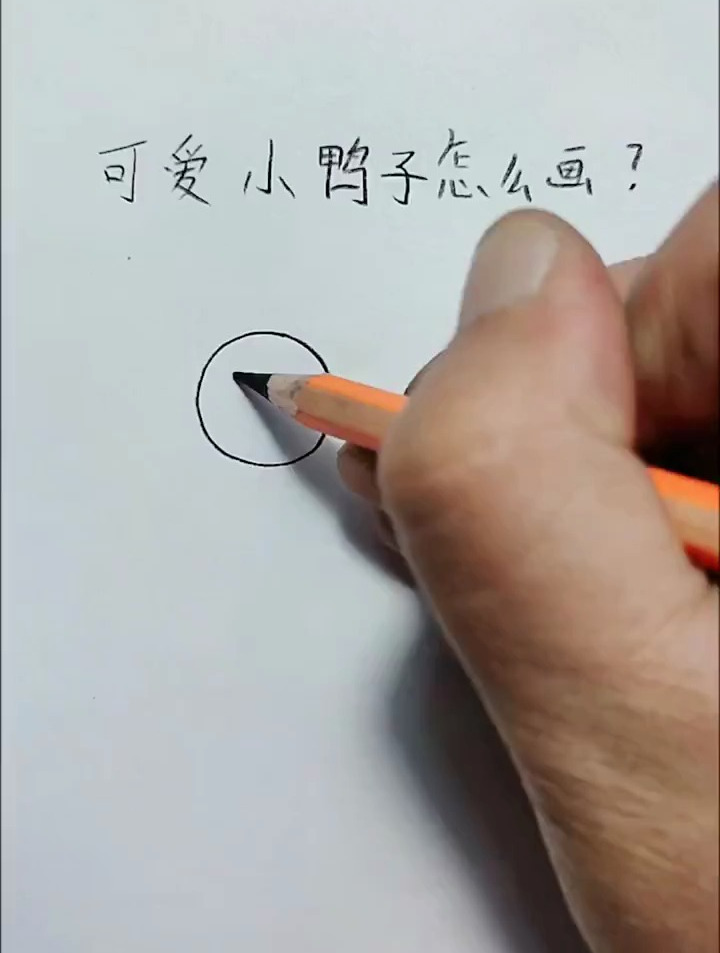 可爱小鸭子怎么画?